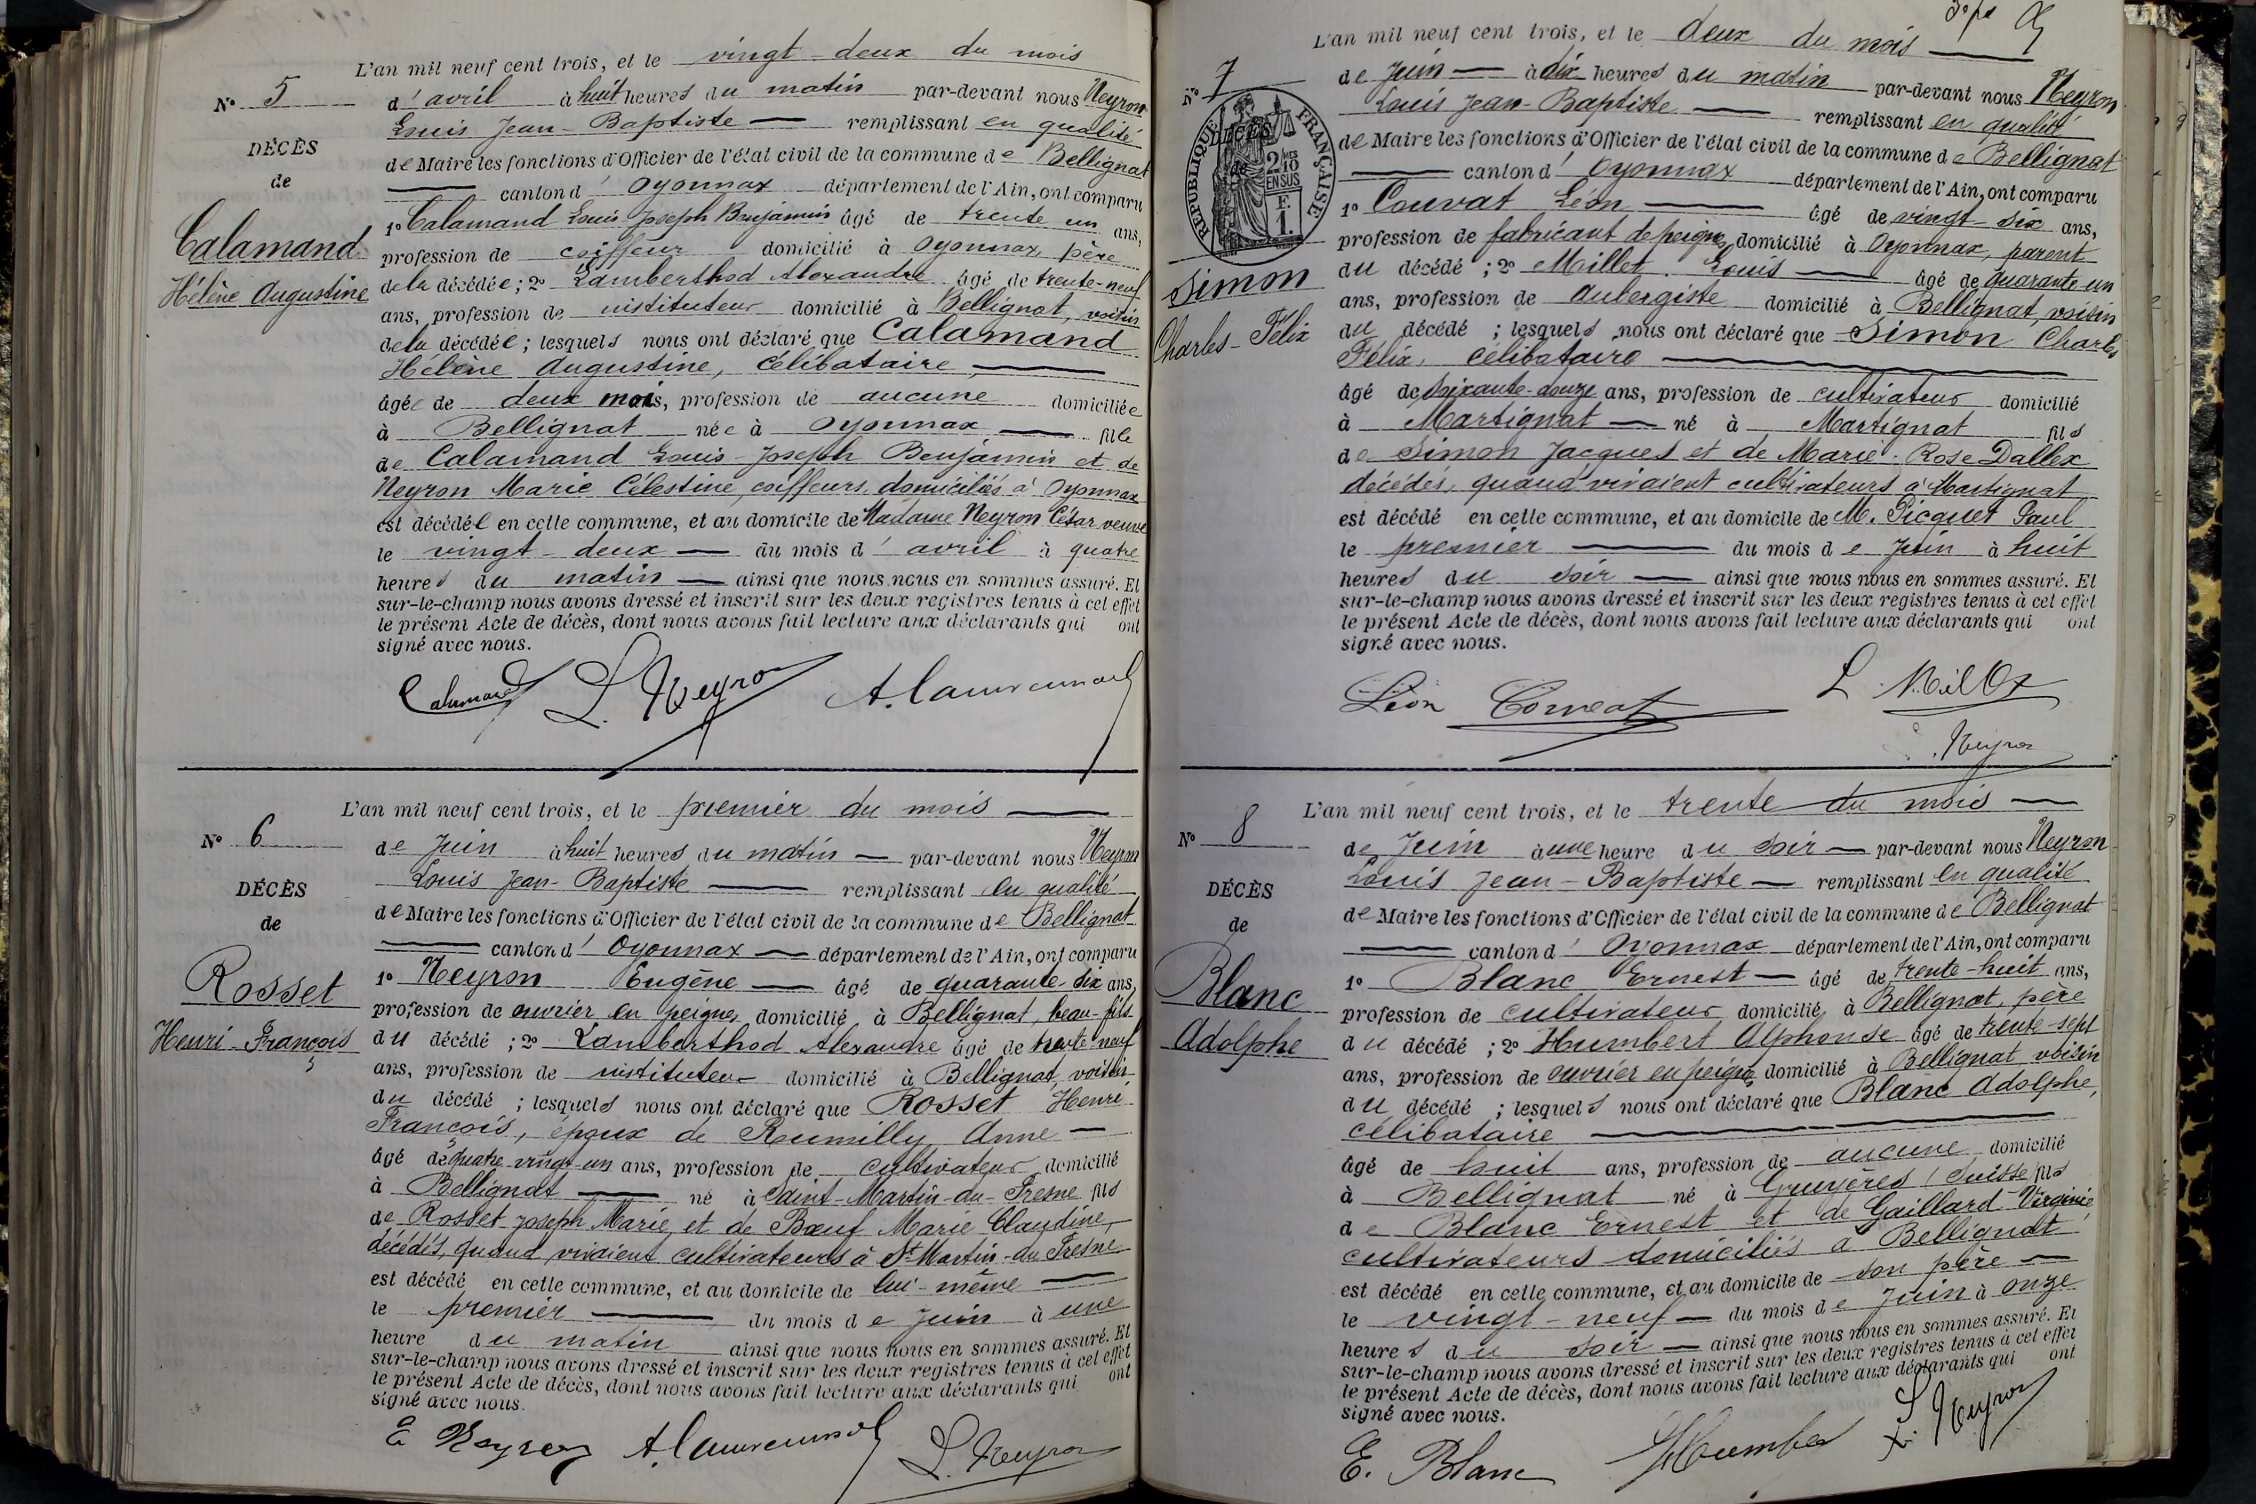 L'an mil neuf cent trois, et le vingt-deux du mois
N° 5
d'avril à huit heures du matin par-devant nous Neyron
Louis Jean-Baptiste remplissant en qualité
DÉCÈS
de Maire les fonctions d'Officier de l'état civil de la commune de Bellignat
de
canton d'Oyonnax département de l'Ain, ont comparu
1° Calamand Louis Joseph Benjamin âgé de trente un ans,
Calamand
profession de coiffeur domicilié à Oyonnax, père
Hélène Augustine
de la décédée; 2° Lamberthod Alexandre âgé de trente-neuf
ans, profession de instituteur domicilié à Bellignat, voisin
de la décédée; lesquels nous ont déclaré que Calamand
Hélène Augustine, célibataire,
âgée de deux mois, profession de aucune domiciliée
à Bellignat née à Oyonnax fille
de Calamand Louis-Joseph Benjamin et de
Neyron Marie Célestine, coiffeurs, domiciliés à Oyonnax
est décédée en cette commune, et au domicile de Madame Neyron César veuve
le vingt-deux du mois d'avril à quatre
heures du matin ainsi que nous nous en sommes assuré. Et
sur-le-champ nous avons dressé et inscrit sur les deux registres tenus à cet effet
le présent Acte de décès, dont nous avons fait lecture aux déclarants qui ont
signé avec nous.
Calamand L. Neyron
L'an mil neuf cent trois, et le premier du mois
N° 6
de Juin à huit heures du matin par-devant nous Neyron
Louis Jean-Baptiste remplissant en qualité
DÉCÈS
de Maire les fonctions d'Officier de l'état civil de la commune de Bellignat
de
canton d'Oyonnax département de l'Ain, ont comparu
1° Neyron Eugène âgé de quarante-six ans,
Rosset
profession de ouvrier en peignes domicilié à Bellignat, beau-fils
Henri-François
du décédé; 2° Lamberthod Alexandre âgé de trente neuf
ans, profession de instituteur domicilié à Bellignat, voisin
du décédé; lesquels nous ont déclaré que Rosset Henri
François, époux de Roumilly Anne
âgé de quatre-vingt-un ans, profession de cultivateur domicilié
à Bellignat né à Saint-Martin-du-Fresne fils
de Rosset Joseph Marie et de Bœuf Marie Claudine,
décédés, quand vivaient cultivateurs à St Martin-du-Fresne
est décédé en cette commune, et au domicile de lui-même
le premier du mois de Juin à une
heure du matin ainsi que nous nous en sommes assuré. Et
sur-le-champ nous avons dressé et inscrit sur les deux registres tenus à cet effet
le présent Acte de décès, dont nous avons fait lecture aux déclarants qui ont
signé avec nous.
E Neyron L. Neyron
L'an mil neuf cent trois, et le deux du mois
N° 7
de Juin à dix heures du matin par-devant nous Neyron
Louis Jean-Baptiste remplissant en qualité
RÉPUBLIQUE FRANÇAISE
2/10 EN SUS
F. 1.
DÉCÈS
de Maire les fonctions d'Officier de l'état civil de la commune de Bellignat
de
canton d'Oyonnax département de l'Ain, ont comparu
1° Couvat Léon âgé de vingt six ans,
profession de fabricant de peignes domicilié à Oyonnax, parent
Simon
du décédé; 2° Millet Louis âgé de quarante-un
ans, profession de aubergiste domicilié à Bellignat, voisin
Charles-Félix
du décédé; lesquels nous ont déclaré que Simon Charles
Félix, célibataire
âgé de soixante-douze ans, profession de cultivateur domicilié
à Martignat né à Martignat fils
de Simon Jacques et de Marie-Rose Dallex
décédés, quand vivaient cultivateurs à Martignat
est décédé en cette commune, et au domicile de M. Picquet Paul
le premier du mois de Juin à huit
heures du soir ainsi que nous nous en sommes assuré. Et
sur-le-champ nous avons dressé et inscrit sur les deux registres tenus à cet effet
le présent Acte de décès, dont nous avons fait lecture aux déclarants qui ont
signé avec nous.
Léon Couvat L. Millet
Neyron
L'an mil neuf cent trois, et le trente du mois
N° 8
de Juin à une heure du soir par-devant nous Neyron
Louis Jean-Baptiste remplissant en qualité
DÉCÈS
de Maire les fonctions d'Officier de l'état civil de la commune de Bellignat
de
canton d'Oyonnax département de l'Ain, ont comparu
1° Blanc Ernest âgé de trente-huit ans,
Blanc
profession de cultivateur domicilié à Bellignat, père
Adolphe
du décédé; 2° Humbert Alphonse âgé de trente-sept
ans, profession de ouvrier en peignes domicilié à Bellignat voisin
du décédé; lesquels nous ont déclaré que Blanc Adolphe,
célibataire
âgé de huit ans, profession de aucune domicilié
à Bellignat né à Gruyères (Suisse) fils
de Blanc Ernest et de Gaillard Virginie
cultivateurs domiciliés à Bellignat
est décédé en cette commune, et au domicile de son père
le vingt-neuf du mois de Juin à onze
heures du soir ainsi que nous nous en sommes assuré. Et
sur-le-champ nous avons dressé et inscrit sur les deux registres tenus à cet effet
le présent Acte de décès, dont nous avons fait lecture aux déclarants qui ont
signé avec nous.
E. Blanc L. Neyron